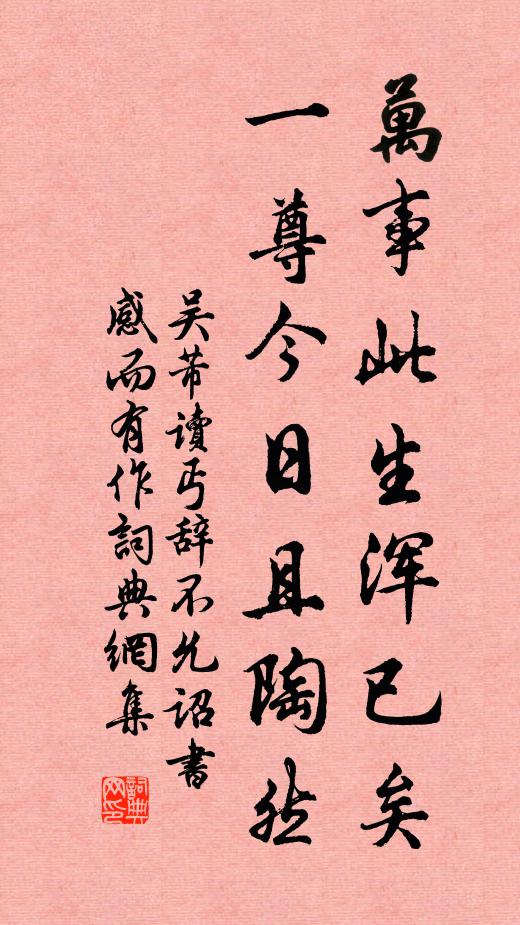 萬事此生浑已矣
一尊今日且陶然
吴芾讀丐辞不允诏書
感而有作詞典網集
詞典
网印